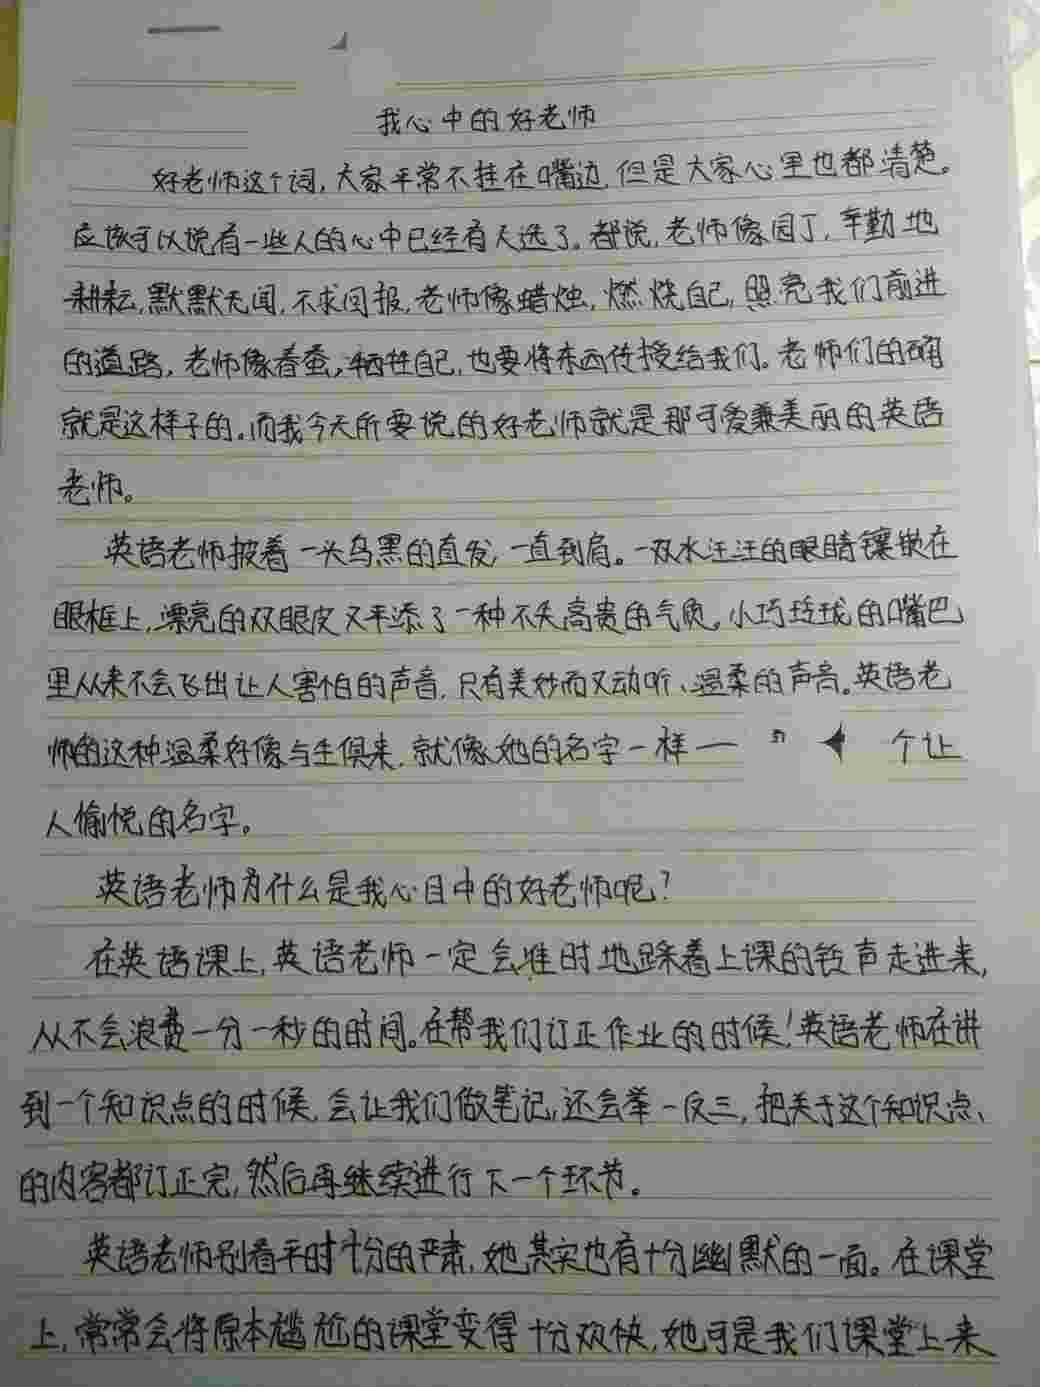 我心中的好老师
好老师这个词,大家平常不挂在嘴边,但是大家心里也都清楚。
应该可以说有一些人的心中已经有人选了。都说,老师像园丁,辛勤地
耕耘,默默无闻,不求回报,老师像蜡烛,燃烧自己,照亮我们前进
的道路,老师像春蚕,牺牲自己,也要将东西传授给我们。老师们的确
就是这样子的。而我今天所要说的好老师就是那可爱兼美丽的英语
老师。
英语老师披着一头乌黑的直发,一直到肩。一双水汪汪的眼睛镶嵌在
眼框上,漂亮的双眼皮又平添了一种不失高贵的气质。小巧玲珑的嘴巴
里从来不会飞出让人害怕的声音,只有美妙而又动听、温柔的声音。英语老
师的这种温柔好像与生俱来,就像她的名字一样一 个让
人愉悦的名字。
英语老师为什么是我心目中的好老师呢?
在英语课上,英语老师一定会准时地踩着上课的铃声走进来,
从不会浪费一分一秒的时间。在帮我们订正作业的时候!英语老师在讲
到一个知识点的时候,会让我们做笔记,还会举一反三,把关于这个知识点、
的内容都订正完,然后再继续进行下一个环节。
英语老师别看平时十分的严肃,她其实也有十分幽默的一面。在课堂
上,常常会将原本尴尬的课堂变得十分欢快,她可是我们课堂上来